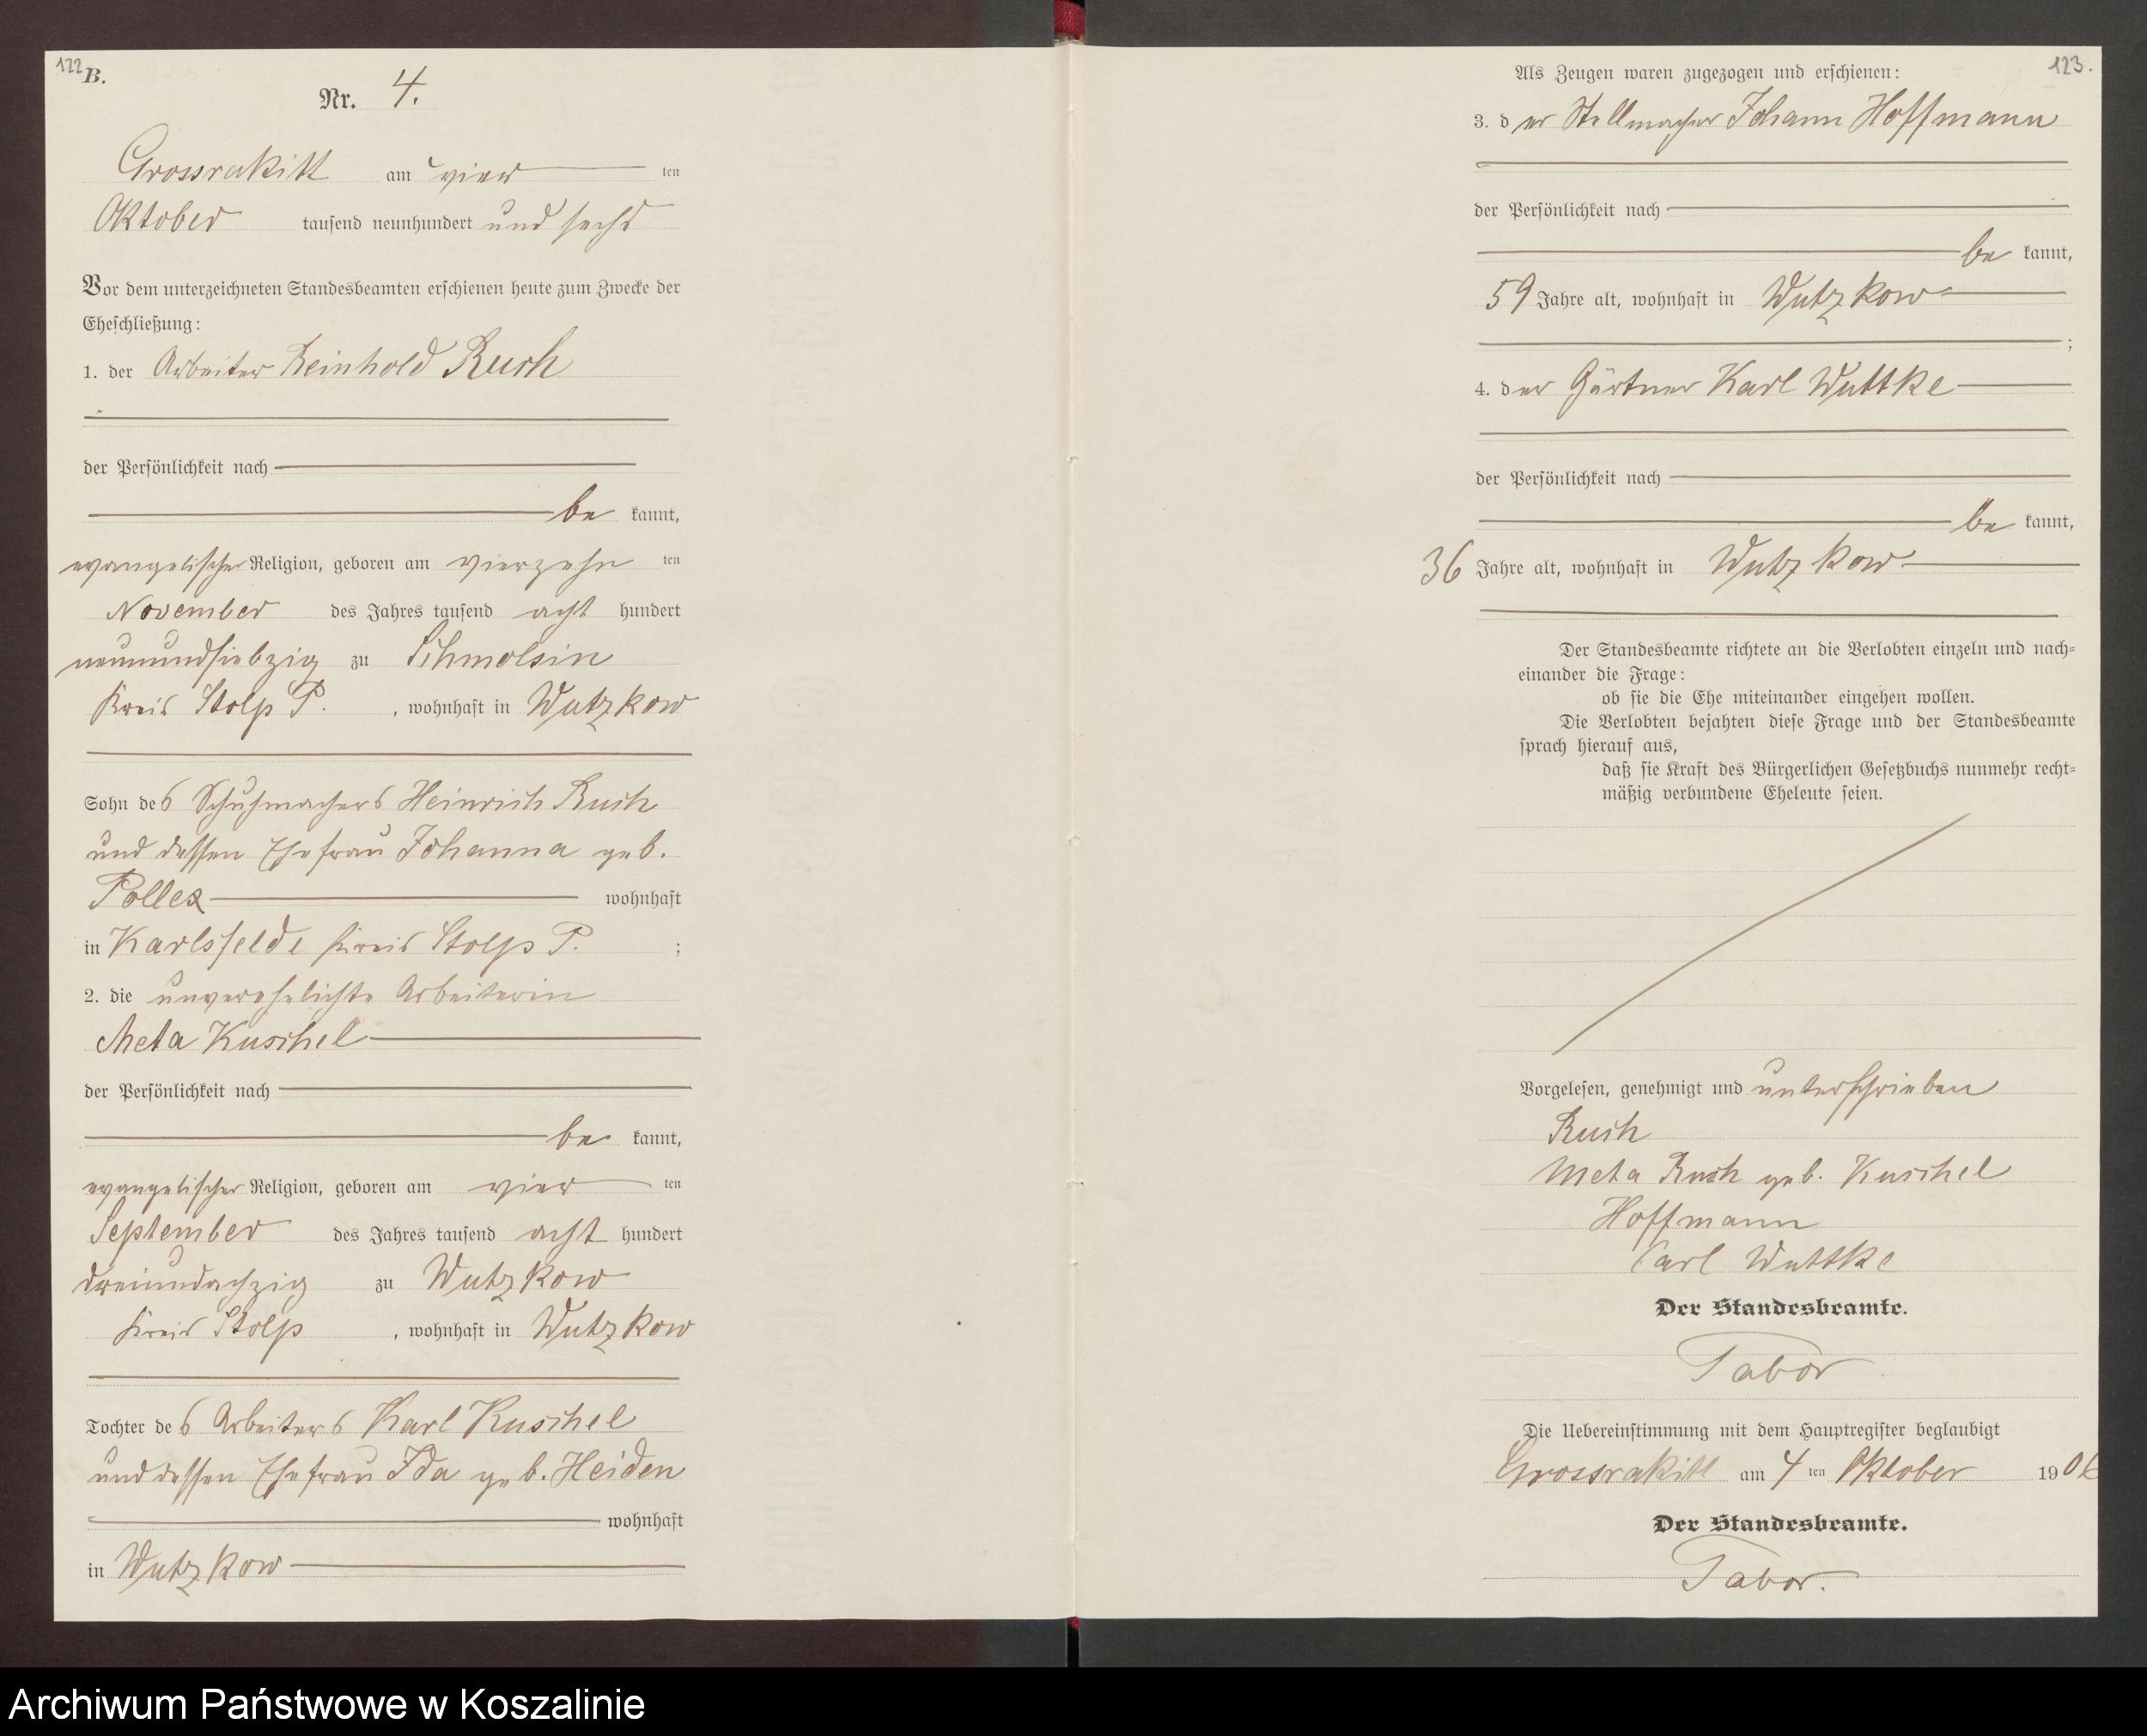 122
B.
Nr. 4.
Grossrakitt am vier ten
Oktober tausend neunhundert und sechs
Vor dem unterzeichneten Standesbeamten erschienen heute zum Zwecke der
Eheschließung:
1. der Arbeiter Reinhold Rusch
der Persönlichkeit nach
be kannt,
evangelischer Religion, geboren am vierzehn ten
November des Jahres tausend acht hundert
neunundsiebzig zu Schmolsin
Kreis Stolp P. , wohnhaft in Wutzkow
Sohn des Schuhmachers Heinrich Rusch
und dessen Ehefrau Johanna geb.
Pollex wohnhaft
in Karlsfelde Kreis Stolp P. ;
2. die unverehelichte Arbeiterin
Meta Kuschel
der Persönlichkeit nach
be kannt,
evangelischer Religion, geboren am vier ten
September des Jahres tausend acht hundert
dreiundachzig zu Wutzkow
Kreis Stolp , wohnhaft in Wutzkow
Tochter des Arbeiters Karl Kuschel
und dessen Ehefrau Ida geb. Heiden
wohnhaft
in Wutzkow
123.
Als Zeugen waren zugezogen und erschienen:
3. der Stellmacher Johann Hoffmann
der Persönlichkeit nach
be kannt,
59 Jahre alt, wohnhaft in Wutzkow
;
4. der Gärtner Karl Wuttke
der Persönlichkeit nach
be kannt,
36 Jahre alt, wohnhaft in Wutzkow
Der Standesbeamte richtete an die Verlobten einzeln und nach=
einander die Frage:
ob sie die Ehe miteinander eingehen wollen.
Die Verlobten bejahten diese Frage und der Standesbeamte
sprach hierauf aus,
daß sie Kraft des Bürgerlichen Gesetzbuchs nunmehr recht=
mäßig verbundene Eheleute seien.
Vorgelesen, genehmigt und unterschrieben
Rusch
Meta Rusch geb. Kuschel
Hoffmann
Carl Wuttke
Der Standesbeamte.
Tabor
Die Uebereinstimmung mit dem Hauptregister beglaubigt
Grossrakitt am 4 ten Oktober 1906
Der Standesbeamte.
Tabor.
Archiwum Państwowe w Koszalinie